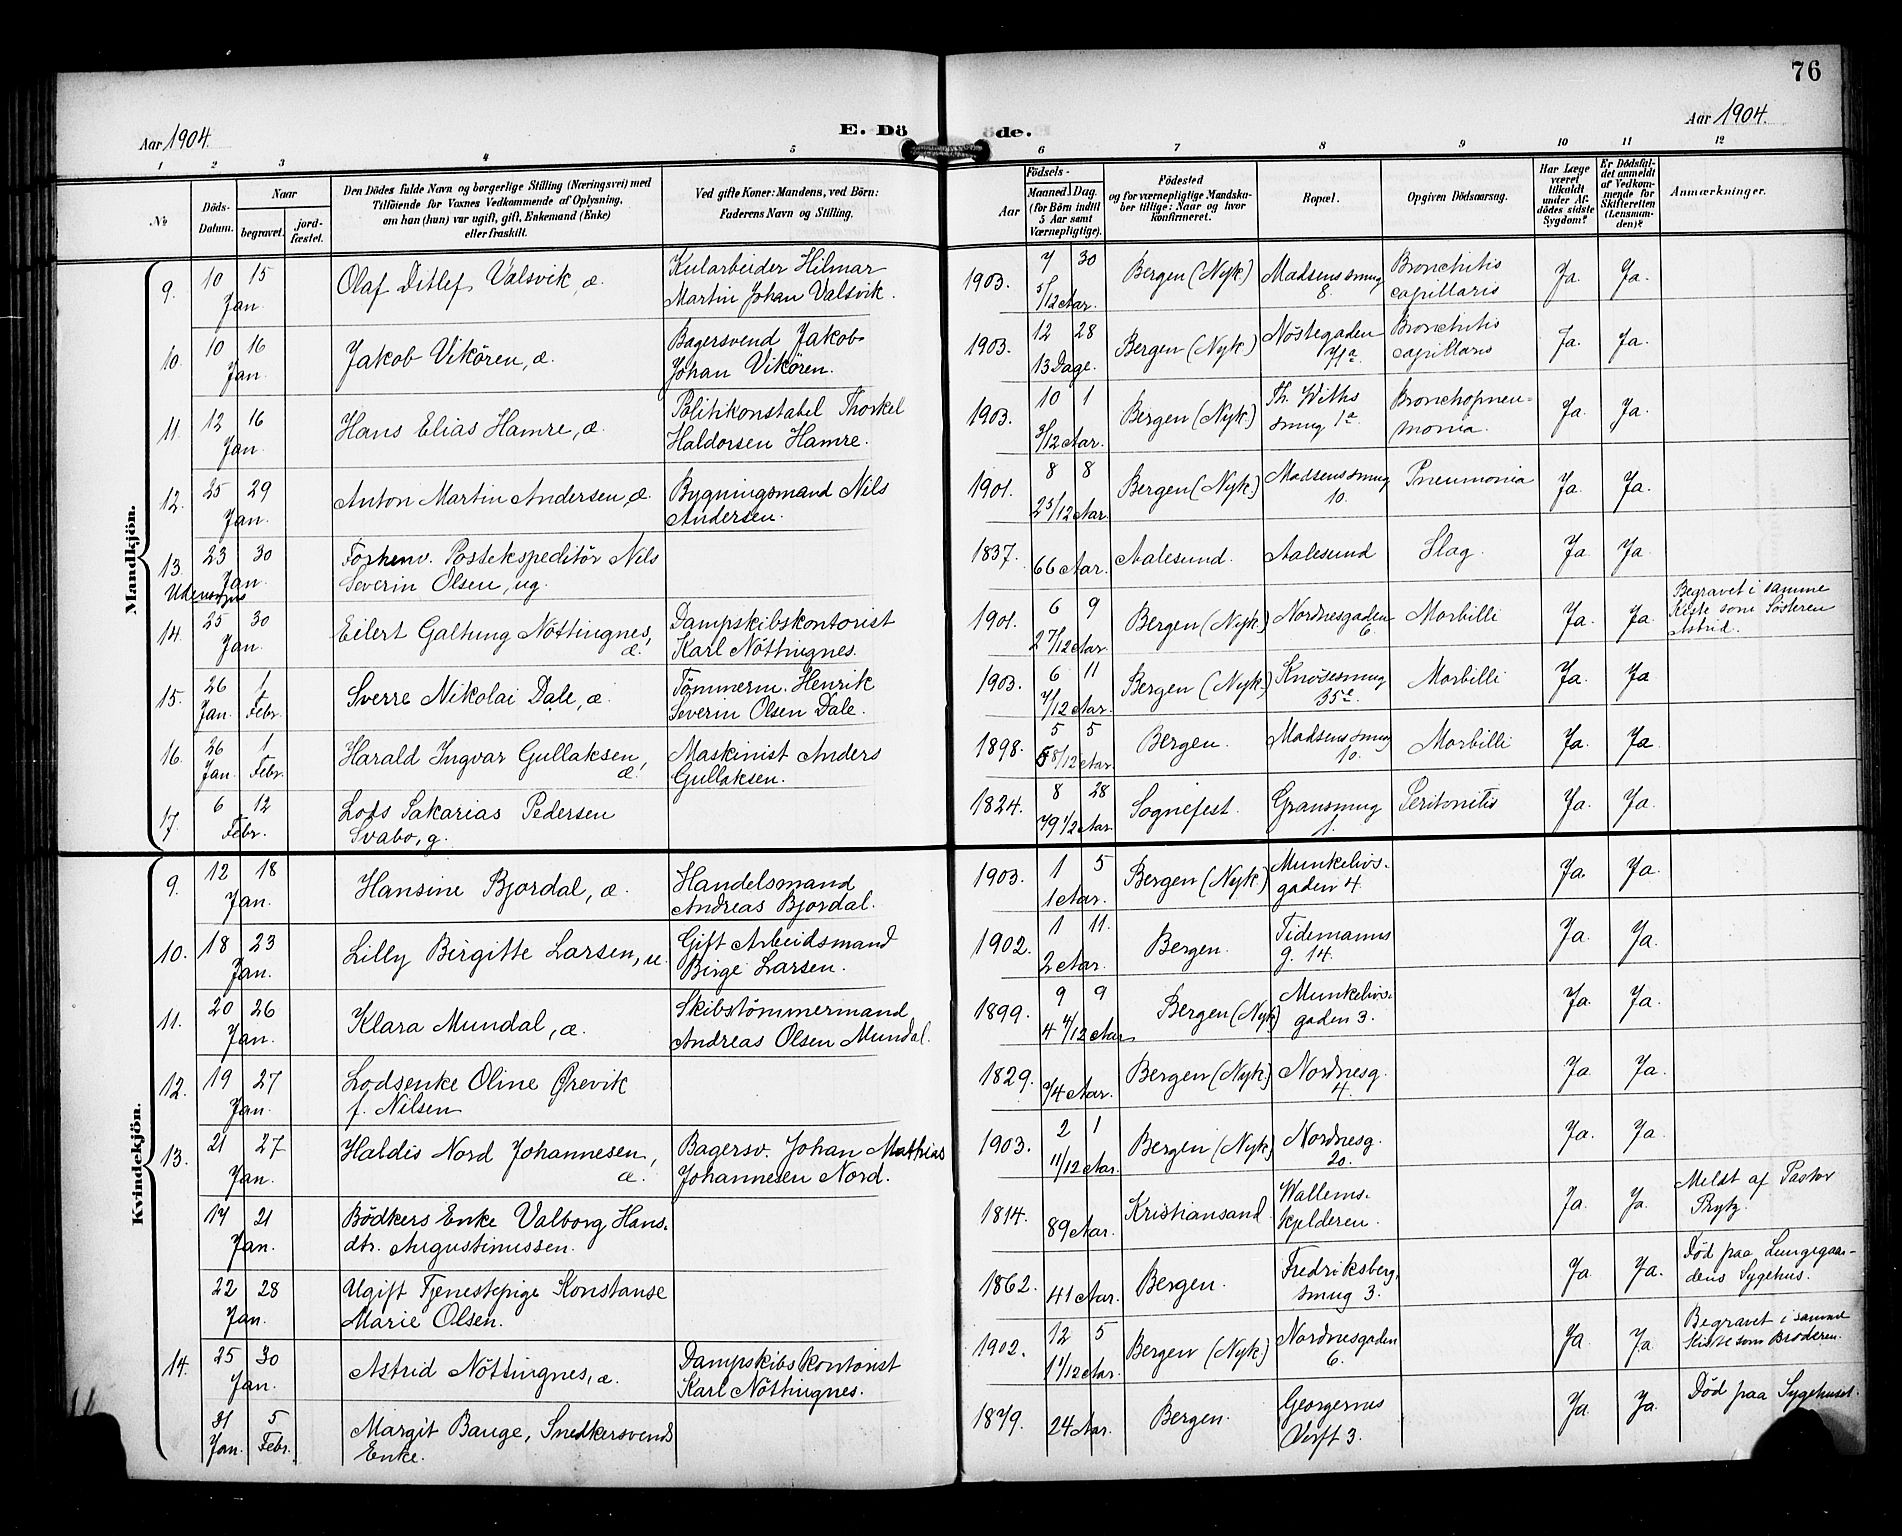 76
Aar 1904.
E. Dö
öde.
Aar 1904.
1 2 3 4 5 6 7 8 9 10 11 12
No.
Döds-Datum.
Naar
begravet.
jord-fæstet.
Den Dödes fulde Navn og borgerlige Stilling (Næringsvei) med
Tilföiende for Voxnes Vedkommende af Oplysning,
om han (hun) var ugift, gift, Enkemand (Enke)
eller fraskilt.
Ved gifte Koner: Mandens, ved Börn:
Faderens Navn og Stilling.
Födsels-
Aar
Maaned. Dag.
(for Börn indtil
5 Aar samt
Værnepligtige).
Födested
og for værnepligtige Mandska-
ber tillige: Naar og hvor
konfirmeret.
Bopæl.
Opgiven Dödsaarsag.
Har Læge
været
tilkaldt
under Af-
dödes sidste
Sygdom?
Er Dödsfal-
det anmeldt
af Vedkom-
mende for
Skifteretten
(Lensman-
den)?
Anmærkninger.
Mandkjön.
9. 10 Jan. 15 Olaf Ditlef Valsvik, æ. Kularbeider Hilmar
Martin Johan Valsvik. 1903. 7 30
5/12 Aar. Bergen (Nyk) Madsenssmug
8. Bronchitis
capillaris Ja. Ja.
10. 10 Jan. 16 Jakob Vikören, æ. Bagersvend Jakob
Johan Vikören. 1903. 12 28
13 Dage. Bergen (Nyk) Nöstegaden
71a Bronchitis
capillaris Ja. Ja.
11. 12 Jan. 16 Hans Elias Hamre, æ. Politikonstabel Thorkel
Haldorsen Hamre. 1903. 10 1
3/12 Aar. Bergen (Nyk) Th. Withs
smug 1a Bronchopneu-
monia. Ja. Ja.
12. 25 Jan. 29 Anton Martin Andersen, æ. Bygningsmand Nils
Andersen. 1901. 8 8
2 5/12 Aar. Bergen (Nyk) Madsenssmug
10. Pneumonia Ja. Ja.
13. Udensogns 23 Jan. 30 Forhenv. Postekspeditör Nils
Severin Olsen, ug. 1837. 66 Aar. Aalesund. Aalesund Slag. Ja. Ja.
14. 25 Jan. 30 Eilert Galtung Nöttingnes,
æ. Dampskibskontorist
Karl Nöttingnes. 1901. 6 9
2 7/12 Aar. Bergen (Nyk) Nordnesgaden
6. Morbilli Ja. Ja. Begravet i samme
Kiste som Sösteren
Astrid.
15. 26 Jan. 1 Febr. Sverre Nikolai Dale, æ. Tömmerm. Henrik
Severin Olsen Dale. 1903. 6 11
7/12 Aar. Bergen (Nyk.) Knösesmug
35e. Morbilli Ja. Ja
16. 26 Jan. 1 Febr. Harald Ingvar Gullaksen,
æ. Maskinist Anders
Gullaksen. 1898. 5 5
5 8/12 Aar. Bergen. Madsenssmug
10. Morbilli Ja. Ja
17. 6 Febr. 12 Lods Sakarias Pedersen
Svabo, g. 1824. 8 28
79 1/2 Aar. Sognefest. Gransmug
1. Peritonitis Ja. Ja.
Kvindekjön.
9. 12 Jan. 18 Hansine Bjordal, æ. Handelsmand
Andreas Bjordal. 1903. 1 5
1 Aar. Bergen (Nyk) Munkelivs-
gaden 4. Ja. Ja.
10. 18 Jan. 23 Lilly Birgitte Larsen, u. Gift Arbeidsmand
Birge Larsen. 1902. 1 11.
2 Aar. Bergen. Tidemanns
g. 14. Ja. Ja.
11. 20 Jan. 26 Klara Mundal, æ. Skibstömmermand
Andreas Olsen Mundal. 1899. 9 9
4 4/12 Aar Bergen (Nyk) Munkelivs-
gaden 3. Ja. Ja.
12. 19 Jan. 27 Lodsenke Oline Ørevik
f. Nilsen 1829. 74 Aar. Bergen (Nyk) Nordnesg.
4. Ja. Ja.
13. 21 Jan. 27 Haldis Nord Johannesen,
æ. Bagersv. Johan Mathias
Johannesen Nord. 1903. 2 1
11/12 Aar. Bergen (Nyk) Nordnesg.
20. Ja. Ja.
17 Jan. 21 Bödkers Enke Valborg Hans-
dtr. Augustinussen. 1814. 89 Aar. Kristiansand. Wallems-
kjelderen. Ja. Ja. Meldt af Pastor
Brytz.
22 Jan. 28 Ugift Tjenestepige Konstanse
Marie Olsen. 1862. 41 Aar. Bergen. Fredriksberg-
smug 3. Ja Ja. Död paa Lungegaar-
dens Sygehus.
14. 25 Jan. 30 Astrid Nöttingnes, æ. Dampskibskontorist
Karl Nöttingnes. 1902. 12 5
1 1/12 Aar. Bergen (Nyk) Nordnesgaden
6. Ja Ja Begravet i samme
Kiste som Broderen.
31 Jan. 5 Febr. Margit Bauge, Snedkersvends
Enke. 1879. 24 Aar. Bergen. Georgernes
Verft 3. Ja Ja. Död paa Sygehuset.